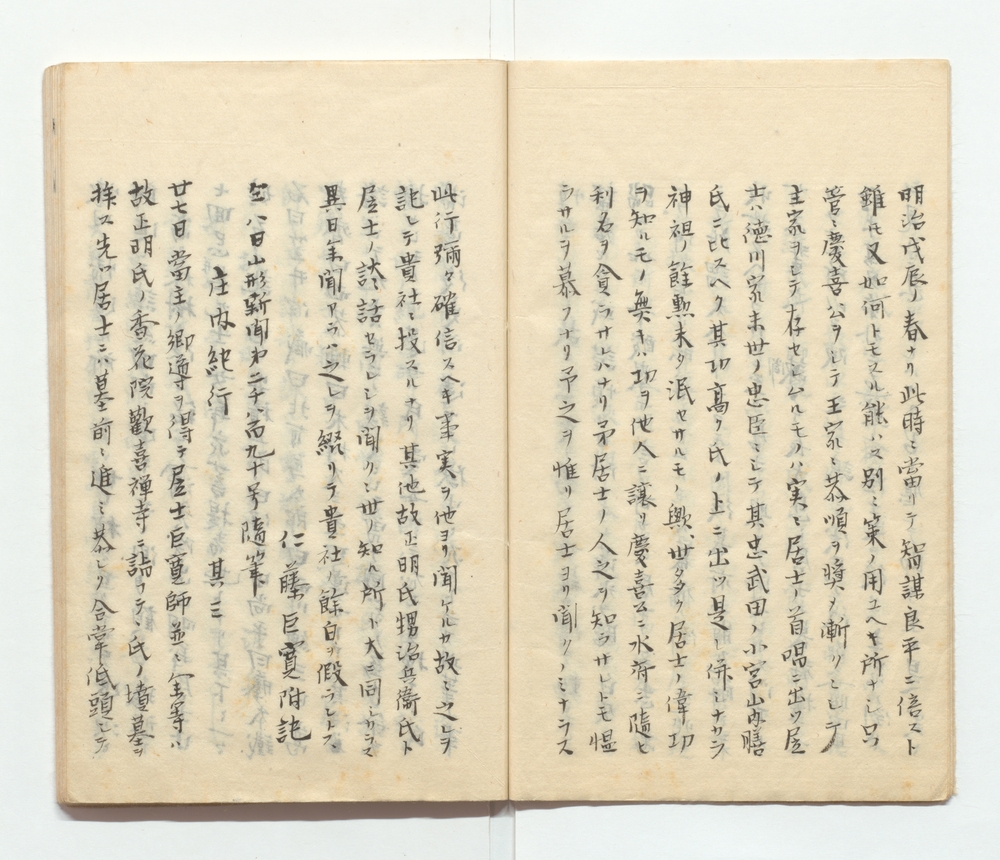 明治戊辰ノ春ナリ此時ニ當リテ智謀良平ニ倍スト
雖𪜈又如何トモスル能ハス別ニ策ノ用ユヘキ所ナシ只
管ニ慶喜公ヲシテ王家ニ恭順ヲ獎メ漸クニシテ
主家ヲシテ存セシムルモノハ実ニ居士ノ首唱ニ出ツ居
士ハ徳川家末世ノ忠臣ニシテ其忠武田ノ小宮山内膳
氏ニ比スヘク其功高ク氏ノ上ニ出ツ是レ併シナカラ
神祖ノ餘勲未タ泯セサルモノ歟世多ク居士ノ偉功
ヲ知ルモノ無キハ功ヲ他人ニ譲リ慶喜公ニ水府ニ隨ヒ
利名ヲ貪ラサレハナリ予居士ノ人之ヲ知ラサレトモ慍
ラサルヲ慕フナリ予之ヲ惟リ居士ヨリ聞クノミナラス
此行彌々確信スヘキ事実ヲ他ヨリ聞ケルカ故ニ之レヲ
記シテ貴社ニ投スルナリ其他故正明氏甥治兵衞氏ト
居士ノ談話セラレシヲ聞クニ世ノ知ル所ト大ニ同シカラス
異日余聞アラハ之レヲ綴リテ貴社ノ餘白ヲ假ラントス
仁藤巨寛附記
仝八日山形新聞第二千八百九十号隨筆
庄内紀行 其三
廿七日當主ノ郷導ヲ得テ居士巨寛師並ニ余等ハ
故正明氏ノ香花院歡喜禅寺ニ詣フテ、氏ノ墳墓ヲ
拝ス先ツ居士ニハ墓前ニ進ミ恭シク合掌低頭シテ